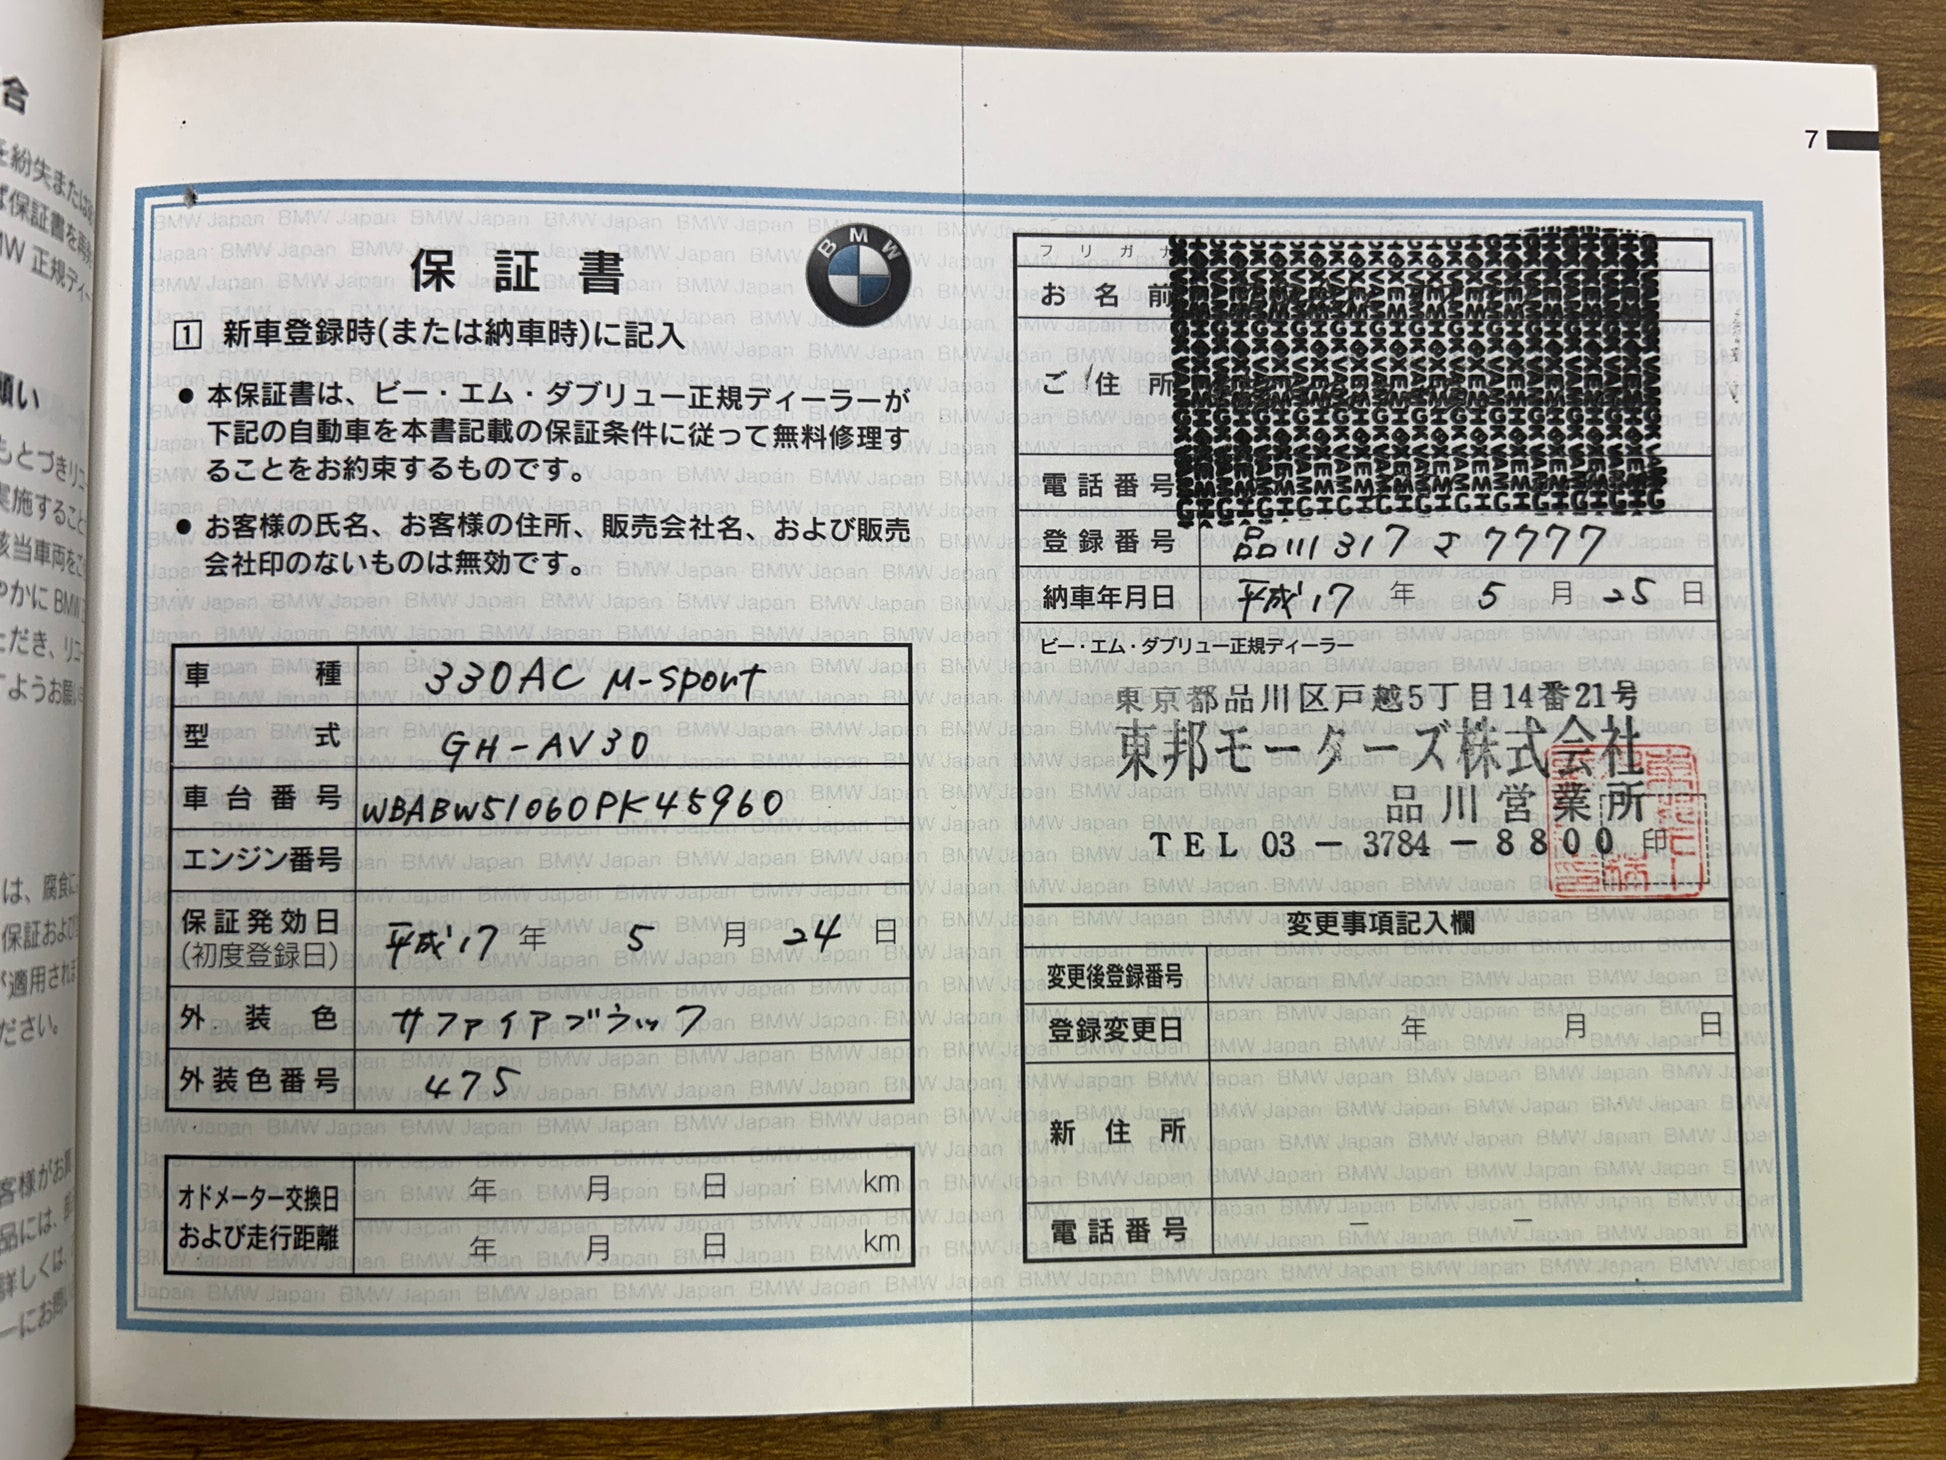 合
を紛失または
ば保証書を再発
MW 正規ディー
願い
もとづきリコー
実施すること
該当車両をご
やかに BMW 正
ただき、リコー
すようお願い
は、腐食に
保証および
が適用されま
ださい。
客様がお買
品には、部
詳しくは、
ーにお問い
7
保証書
BMW
1 新車登録時(または納車時)に記入
● 本保証書は、ビー・エム・ダブリュー正規ディーラーが
下記の自動車を本書記載の保証条件に従って無料修理す
ることをお約束するものです。
● お客様の氏名、お客様の住所、販売会社名、および販売
会社印のないものは無効です。
車種 330AC M-Sport
型式 GH-AV30
車台番号 WBABW51060PK45960
エンジン番号
保証発効日 平成17年 5月 24日
(初度登録日)
外装色 サファイアブラック
外装色番号 475
オドメーター交換日 年 月 日 km
および走行距離 年 月 日 km
フリガナ
お名前
ご住所
電話番号
登録番号 品川317 さ 7777
納車年月日 平成17年 5月 25日
ビー・エム・ダブリュー正規ディーラー
東京都品川区戸越5丁目14番21号
東邦モーターズ株式会社
品川営業所
TEL 03-3784-8800 印
変更事項記入欄
変更後登録番号
登録変更日 年 月 日
新住所
電話番号 － －
BMW Japan